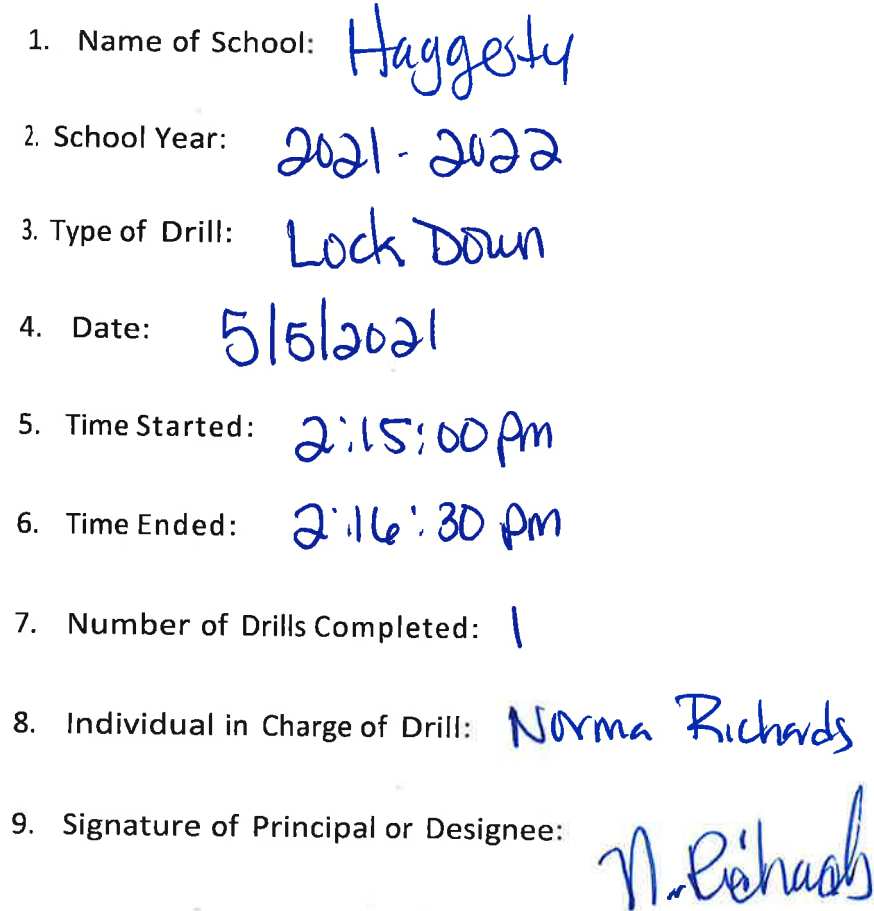 1. Name of School: Haggesty
2. School Year: 2021 - 2022
3. Type of Drill: Lock Down
4. Date: 5/5/2021
5. Time Started: 2:15:00 pm
6. Time Ended: 2:16:30 pm
7. Number of Drills Completed: 1
8. Individual in Charge of Drill: Norma Richards
9. Signature of Principal or Designee: N. Richards